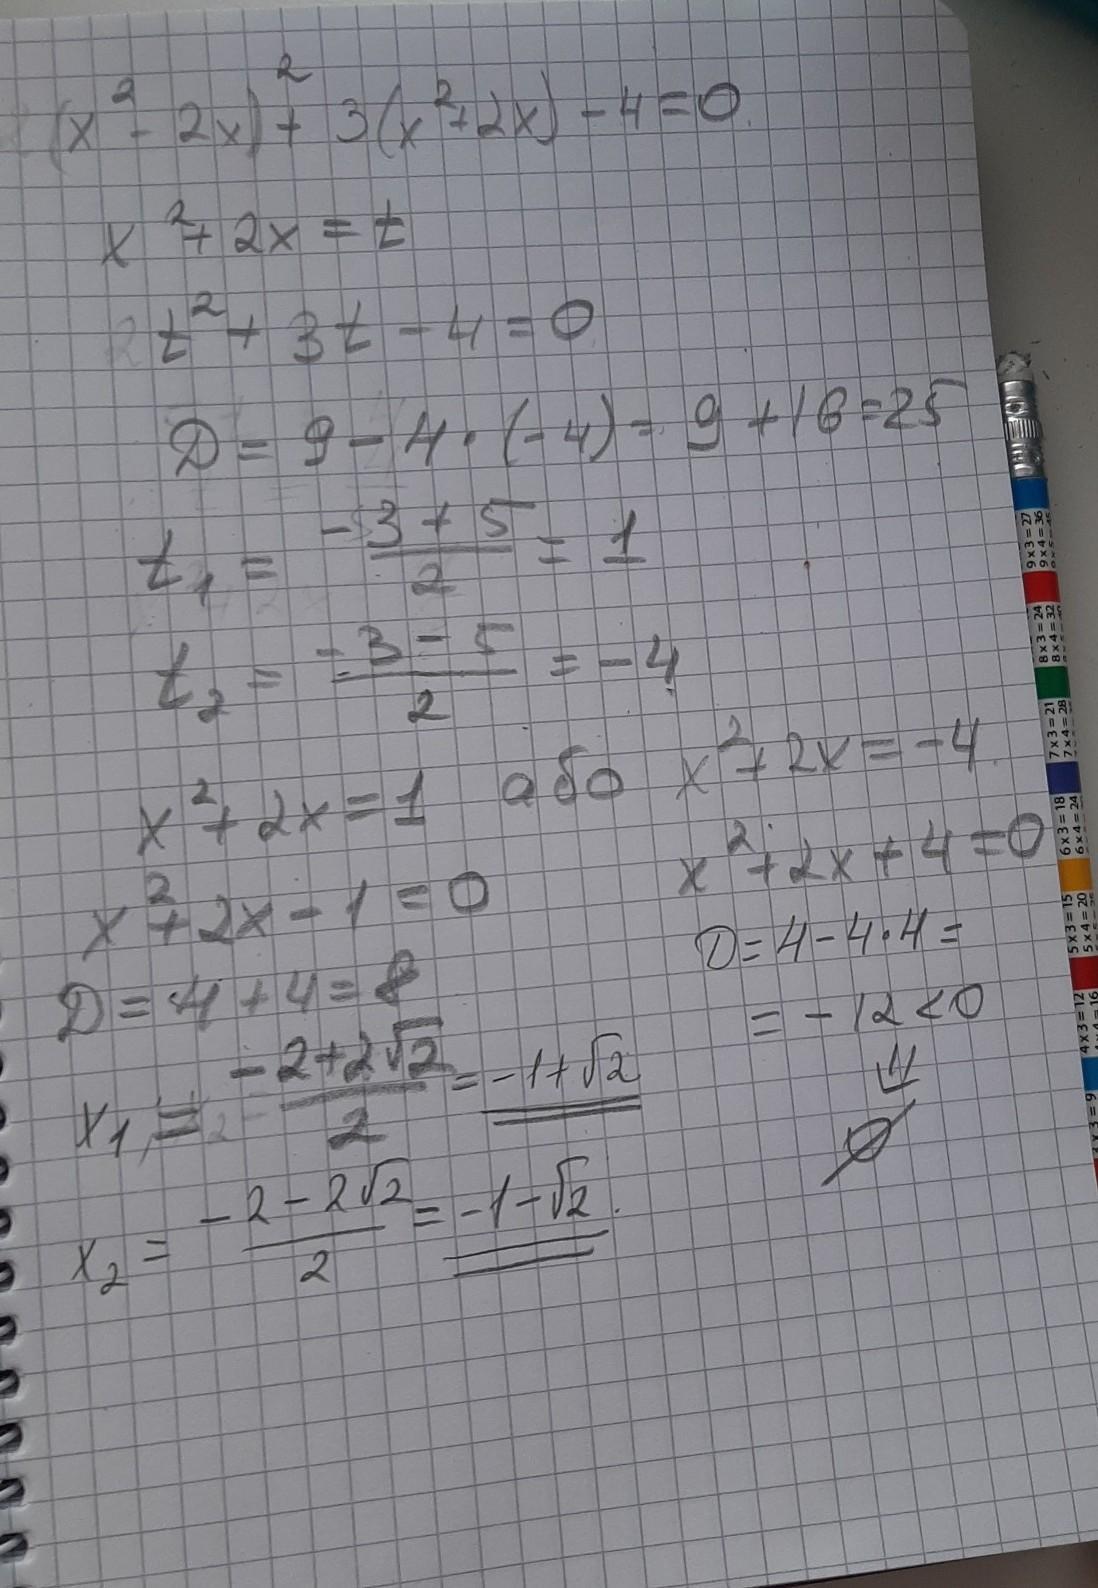 (x² - 2x)² + 3(x² + 2x) - 4 = 0
x² + 2x = t
t² + 3t - 4 = 0
D = 9 - 4 · (-4) = 9 + 16 = 25
t₁ = (-3 + 5)/2 = 1
t₂ = (-3 - 5)/2 = -4
x² + 2x = 1 або x² + 2x = -4
x² + 2x - 1 = 0
D = 4 + 4 = 8
x₁ = (-2 + 2√2)/2 = -1 + √2
x₂ = (-2 - 2√2)/2 = -1 - √2.
x² + 2x + 4 = 0
D = 4 - 4 · 4 =
= -12 < 0
⇓
∅
9 x 3 = 27
9 x 4 = 36
8 x 3 = 24
8 x 4 = 32
7 x 3 = 21
7 x 4 = 28
6 x 3 = 18
6 x 4 = 24
5 x 3 = 15
5 x 4 = 20
4 x 3 = 12
4 x 4 = 16
x 3 = 9